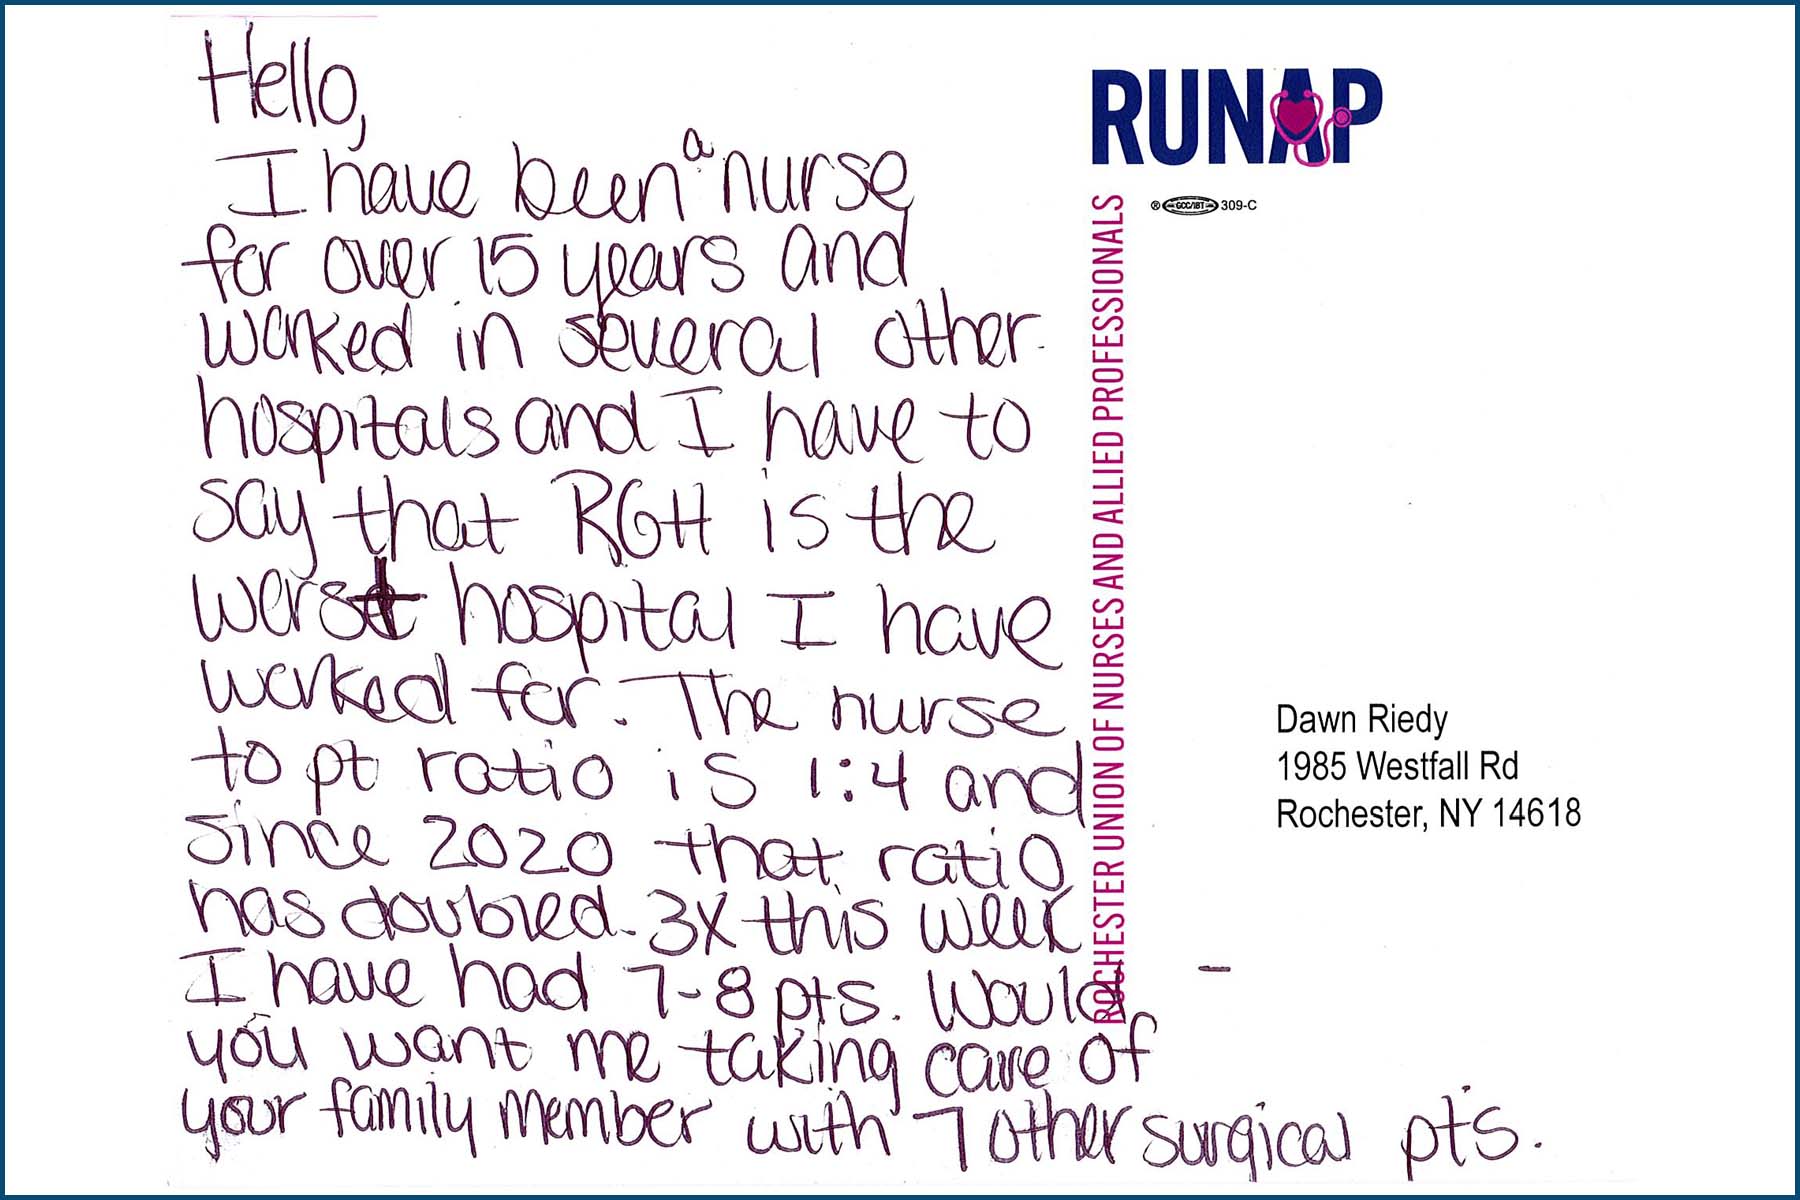 Hello,
I have been a nurse
for over 15 years and
worked in several other
hospitals and I have to
say that RGH is the
worst hospital I have
worked for. The nurse
to pt ratio is 1:4 and
since 2020 that ratio
has doubled. 3X this week
I have had 7-8 pts. Would
you want me taking care of
your family member with 7 other surgical pt's.
RUNAP
® GCC/IBT 309-C
ROCHESTER UNION OF NURSES AND ALLIED PROFESSIONALS
Dawn Riedy
1985 Westfall Rd
Rochester, NY 14618